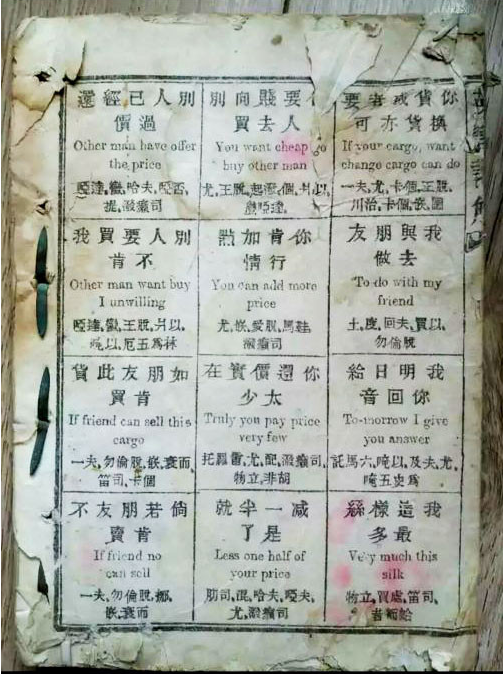 你貨或者要
換貨亦可
If your cargo, want
change cargo can do
一夫,尤,卡個,王脫,
川治,卡個,嵌,
要賤向別
人去買
You want cheap go
buy other man
尤,王脫,起潑,個,
別人已經還
過價
Other man have offer
the price
哈夫,
我與朋友
去做
To do with my
friend
土,度,夫回,買以,
勿倫脫
你肯加點
行情
You can add more
price
尤,嵌,愛脫,馬鞋,
潑癩司
別人要買我
不肯
Other man want buy
I unwilling
王脫,
我明日給
你回音
To-morrow I give
you answer
託馬六,唵以,及夫,尤,
唵史五為
你還價實在
太少
Truly you pay price
very few
托羅雷,尤,配,潑癩司,
物立,非胡
如朋友此貨
肯買
If friend can sell this
cargo
一夫,勿倫脫,嵌,衰而,
笛司,卡個
我這樣絲
最多
Very much this
silk
物立,處買,笛司,
減一半就
是了
Less one half of
your price
哈夫,啞夫,
尤,潑癩司
倘若友朋不
肯賣
If friend no
can sell
一夫,勿倫脫,娜,
嵌,衰而